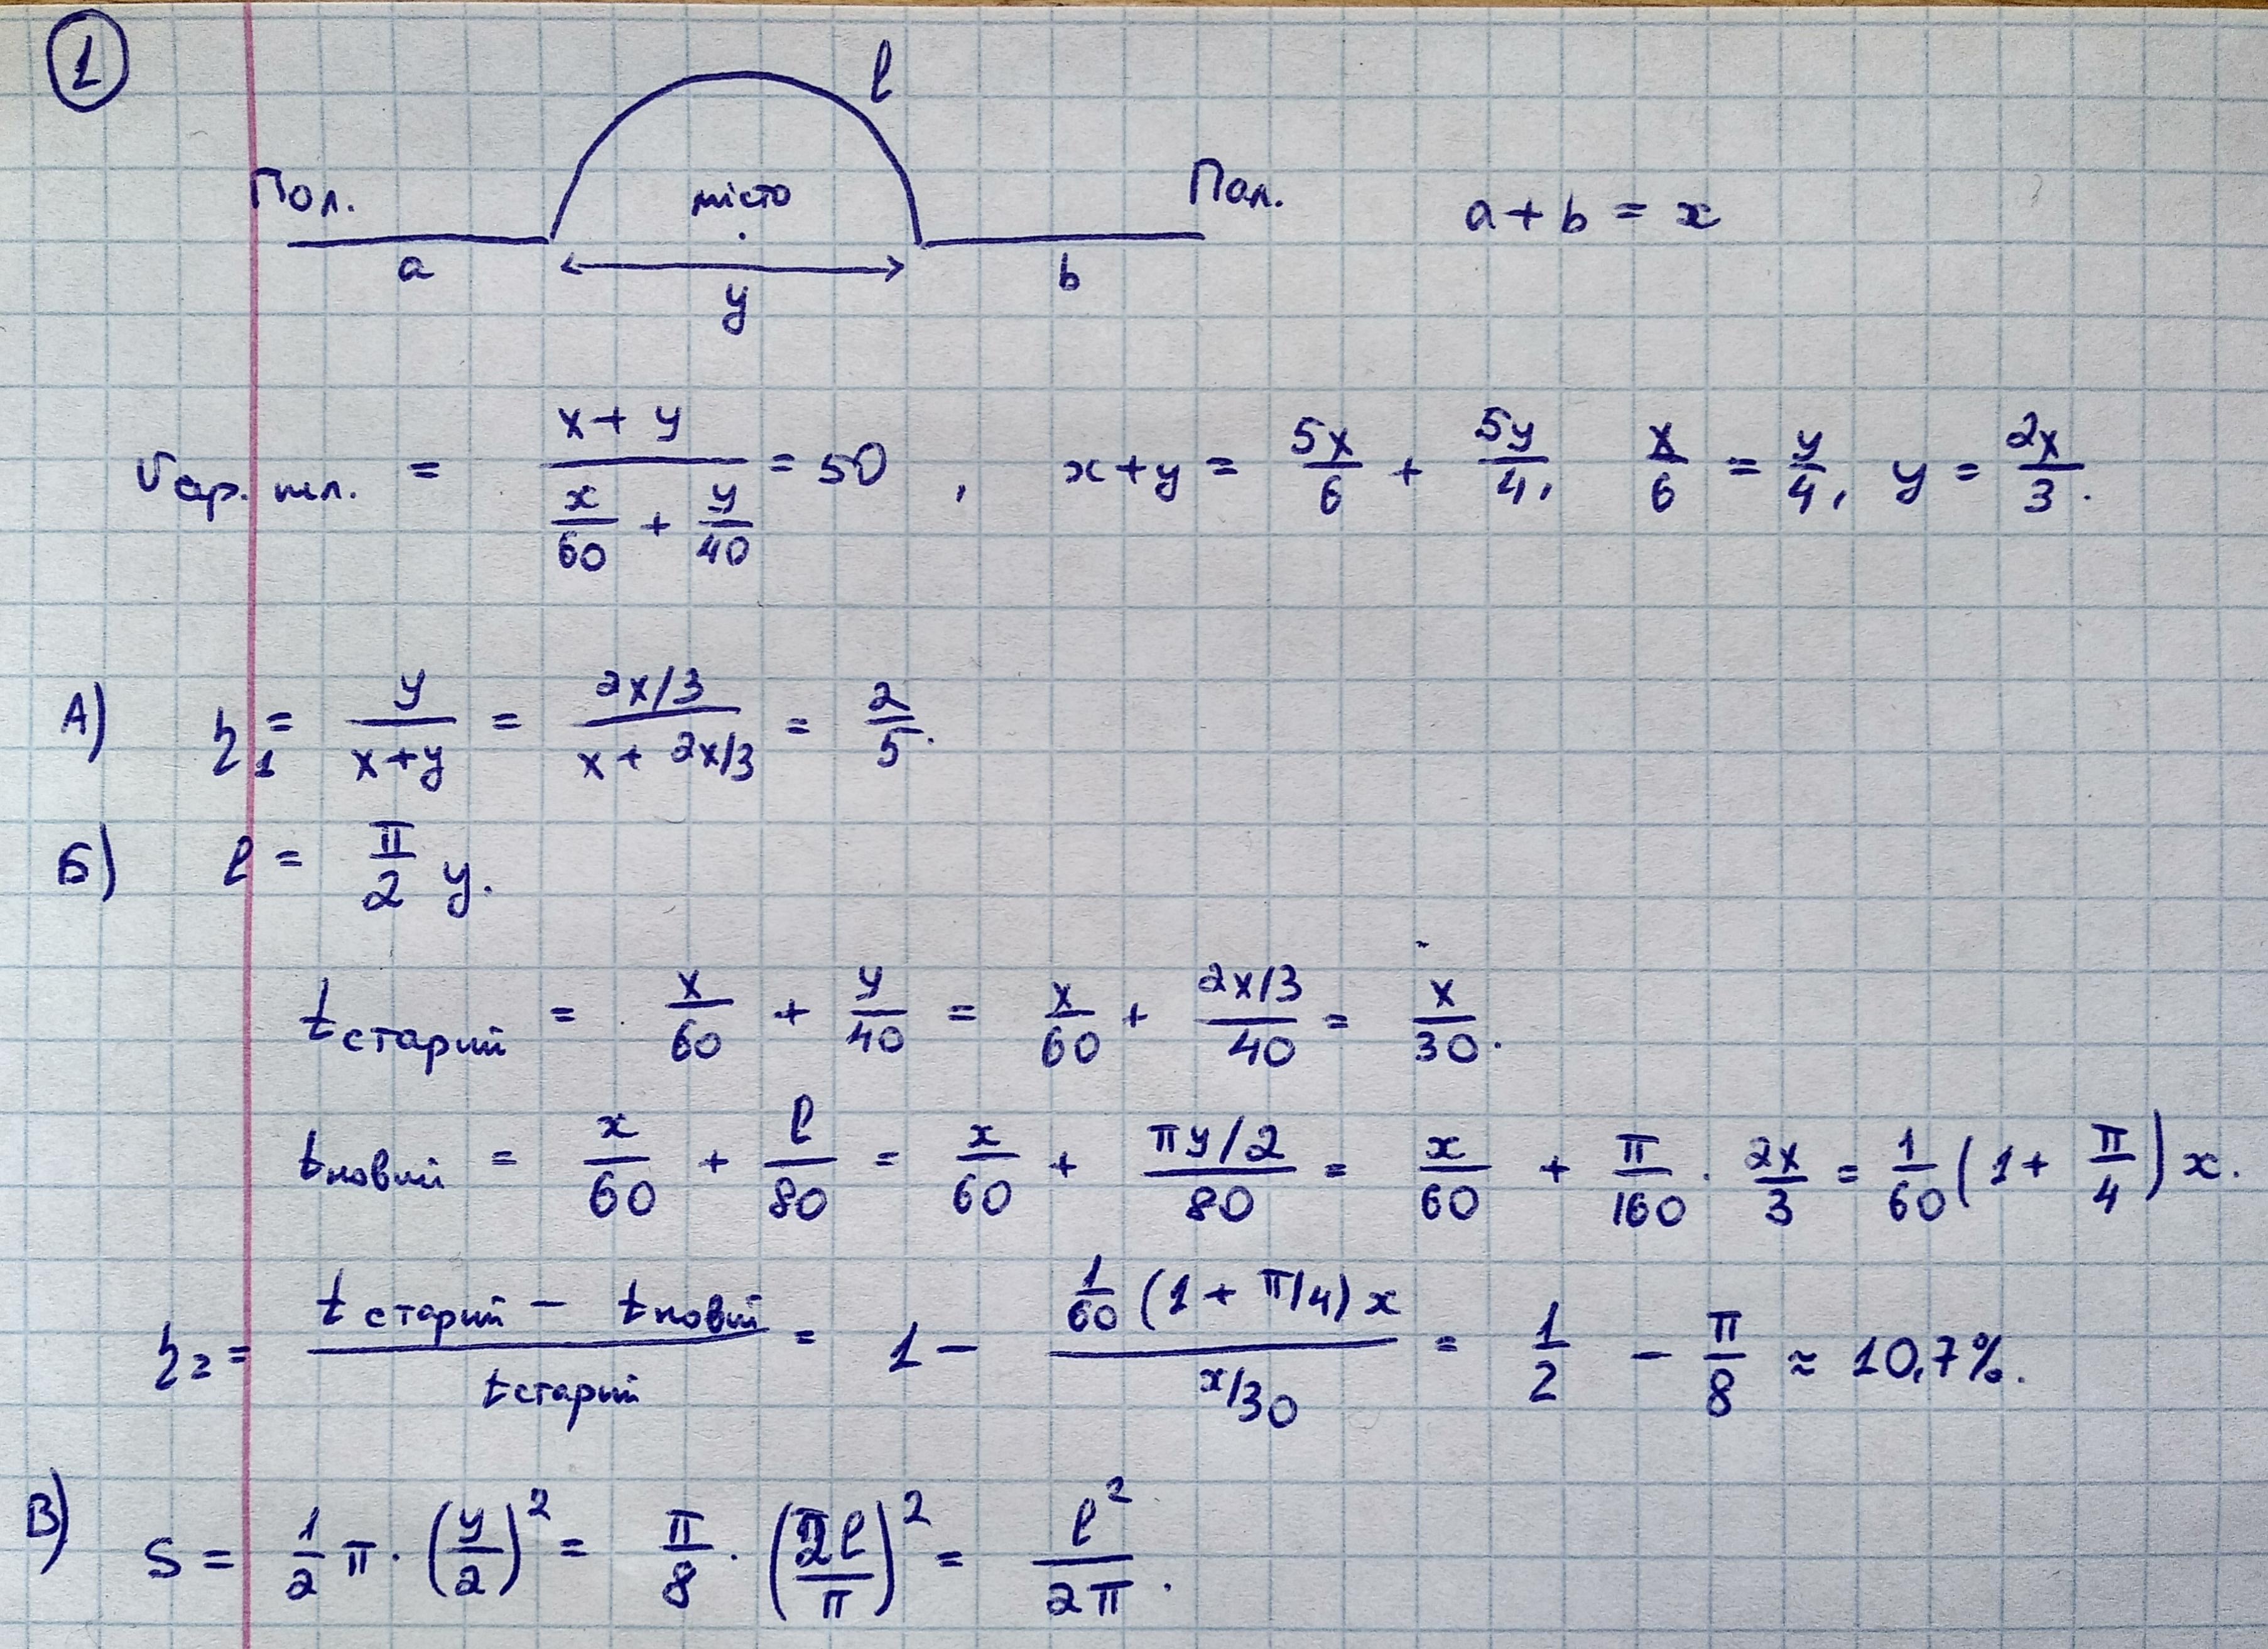 1
l
Пол. місто Пол. a + b = x
a y b
Vср. шл. = (x + y)/(x/60 + y/40) = 50, x + y = 5x/6 + 5y/4, x/6 = y/4, y = 2x/3.
А) η₁ = y/(x+y) = (2x/3)/(x + 2x/3) = 2/5.
Б) l = π/2 y.
tстарий = x/60 + y/40 = x/60 + (2x/3)/40 = x/30.
tновий = x/60 + l/80 = x/60 + (πy/2)/80 = x/60 + π/160 · 2x/3 = 1/60 (1 + π/4) x.
η₂ = (tстарий − tновий)/tстарий = 1 − (1/60 (1 + π/4) x)/(x/30) = 1/2 − π/8 ≈ 10,7%.
В) S = 1/2 π · (y/2)² = π/8 · (2l/π)² = l²/2π.